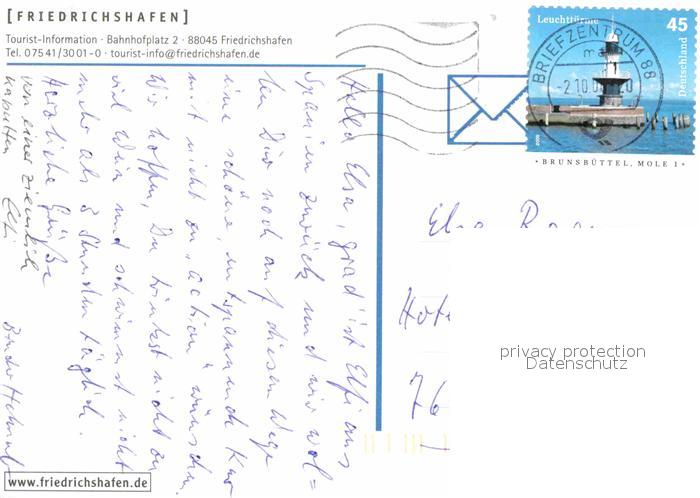 [FRIEDRICHSHAFEN]
Tourist-Information · Bahnhofplatz 2 · 88045 Friedrichshafen
Tel. 07541/3001-0 · tourist-info@friedrichshafen.de
Leuchttürme
45
Deutschland
BRIEFZENTRUM 88
-2.10.0
· BRUNSBÜTTEL, MOLE 1 ·
Hallo Elsa, grad ist Elfi aus
Spanien zurück und wir wol=
len Dir noch auf diesem Wege
eine schöne, entspannende Kur
mit nicht zu „action" wünschen.
Wir hoffen, Du trinkst nicht zu
viel Wein und schwimmst nicht
mehr als 8 Stunden täglich.
Herzliche Grüße
von einer ziemlich
kaputten Elfi
Elsa
Hot
76
privacy protection
Datenschutz
www.friedrichshafen.de